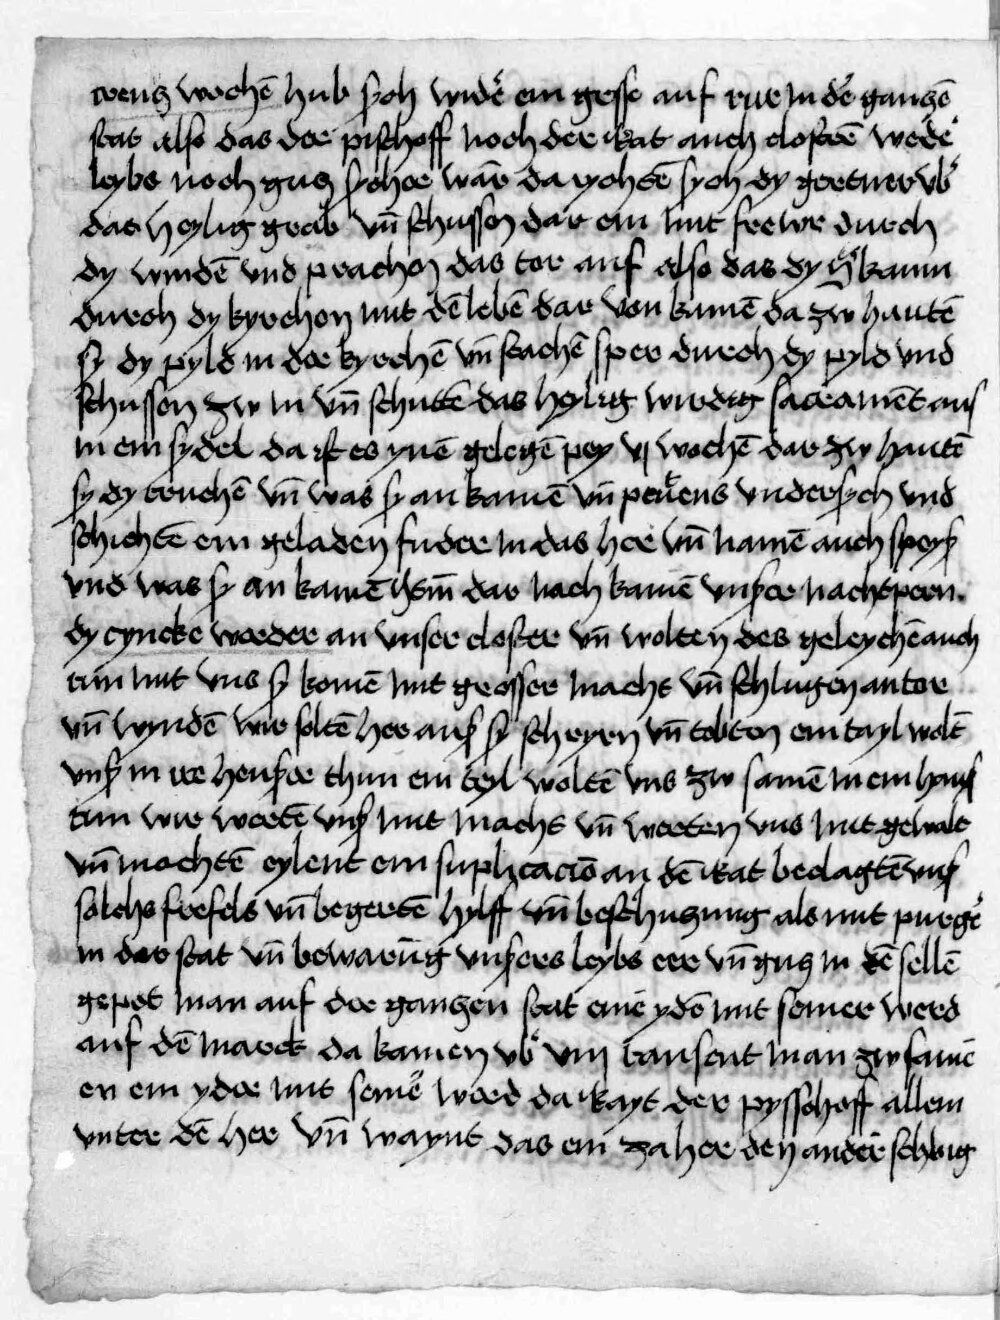 creutz wochē hub sych widē ein gresse auf rur in dē gantzē
stat also das der pischoff noch der rat auch closterē wedē
leybs noch gutz sycher war da rychtē sych dy gertner vbē
das heylig grab vn̄ schussen dar ein mit fewr durch
dy winden̄ vnd prachen das tor auf also das dy hē kaum
durch dy kyrchen mit dē lebē dar von kamē da zw hautē
sy dy pyld in der kyrchē vn̄ stachē sper durch dy pyld vnd
schussen zw in vn̄ schutē das heylig wirdig sacramēt aus
in ein sydel da ist es ynē gelegē pey vj wochē dar zw hautē
sy dy truchē vn̄ was sy an kamē vn̄ peutens vndersych vnd
schichtē ein geladen fuder in das her vn̄ namē auch speys
vnd was sy an kamē dar nach kamē vnser nachtpern
dy cyncke werder an vnser closter vn̄ wolten des geleychē auch
tun mit vns sy komē mit grosser macht vn̄ schlugen an tor
vn̄ wyndē wir soltē her aus sy schryen vn̄ tobten ein tayl wolt̄
vns in ire heuser thun ein teyl woltē vns zw samē in ein haus
tun wir wertē vns mit macht vn̄ werten vns mit gewalt
vn̄ machtē eylent ein suplicacio an dē rat beclagtē vns
solchs frefels vn̄ begertē hylff vn̄ beschutzung als mit purgē
in der stat vn̄ bewarūg vnsers leybs eer vn̄ gutz in dē sellē
gepot man auf der gantzen stat einē ydē mit seiner werd
auf dē marck da kamen vbē viij tausent man zw samē
en ein yder mit seinē werd da rayt der pysschoff allein
vnter dē her vn̄ waynt das ein zaher den anderē schlug